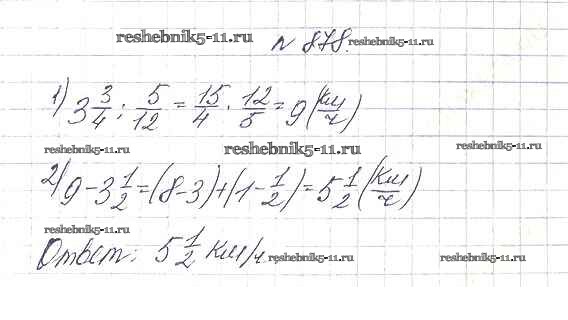 reshebnik5-11.ru № 878. reshebnik5-11.ru
1) 3 3/4 : 5/12 = 15/4 · 12/5 = 9 (км/ч)
reshebnik5-11.ru reshebnik5-11.ru reshebnik5-11.ru
2) 9 - 3 1/2 = (8-3)+(1-1/2) = 5 1/2 (км/ч)
reshebnik5-11.ru
Ответ: 5 1/2 км/ч reshebnik5-11.ru reshebnik5-11.ru